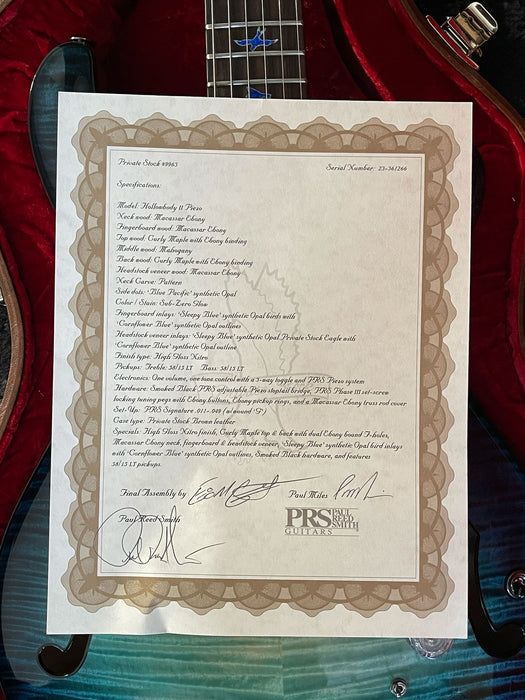 Private Stock #9963
Serial Number: 23-361266
Specifications:
Model: Hollowbody II Piezo
Neck wood: Macassar Ebony
Fingerboard wood: Macassar Ebony
Top wood: Curly Maple with Ebony binding
Middle wood: Mahogany
Back wood: Curly Maple with Ebony binding
Headstock veneer wood: Macassar Ebony
Neck Carve: Pattern
Side dots: 'Blue Pacific' synthetic Opal
Color / Stain: Sub-Zero Glow
Fingerboard inlays: 'Sleepy Blue' synthetic Opal birds with
'Cornflower Blue' synthetic Opal outlines
Headstock veneer inlays: 'Sleepy Blue' synthetic Opal Private Stock Eagle with
'Cornflower Blue' synthetic Opal outline
Finish type: High Gloss Nitro
Pickups: Treble: 58/15 LT Bass: 58/15 LT
Electronics: One volume, one tone control with a 3-way toggle and PRS Piezo system
Hardware: Smoked Black PRS adjustable Piezo stoptail bridge, PRS Phase III set-screw
locking tuning pegs with Ebony buttons, Ebony pickup rings, and a Macassar Ebony truss rod cover
Set-Up: PRS Signature .011-.049 (w/wound 'G')
Case type: Private Stock Brown leather
Specials: High Gloss Nitro finish, Curly Maple top & back with dual Ebony bound F-holes,
Macassar Ebony neck, fingerboard & headstock veneer, 'Sleepy Blue' synthetic Opal bird inlays
with 'Cornflower Blue' synthetic Opal outlines, Smoked Black hardware, and features
58/15 LT pickups.
Final Assembly by
Paul Miles
Paul Reed Smith
PRS PAUL REED SMITH
GUITARS